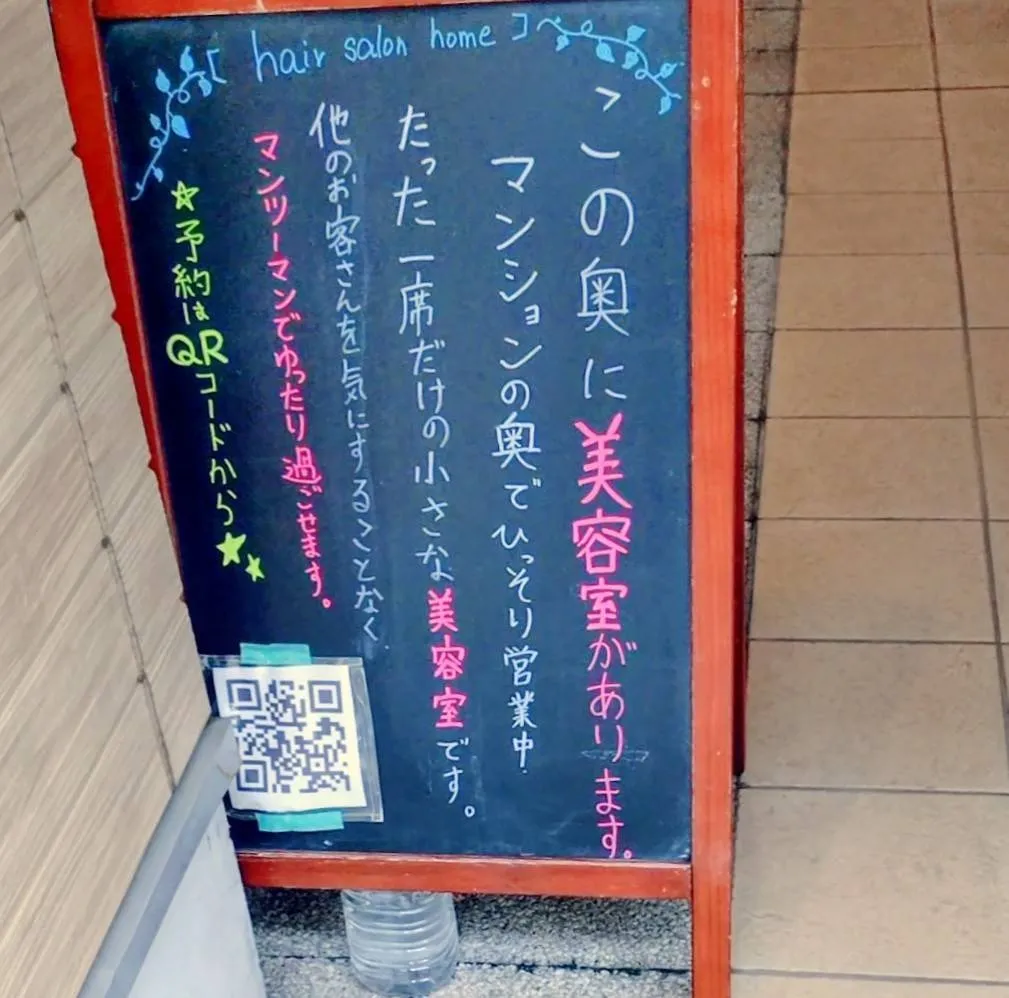 [ hair salon home ]
この奥に美容室があります。
マンションの奥でひっそり営業中.
たった一席だけの小さな美容室です。
他のお客さんを気にすることなく
マンツーマンでゆったり過ごせます。
☆予約はQRコードから★★